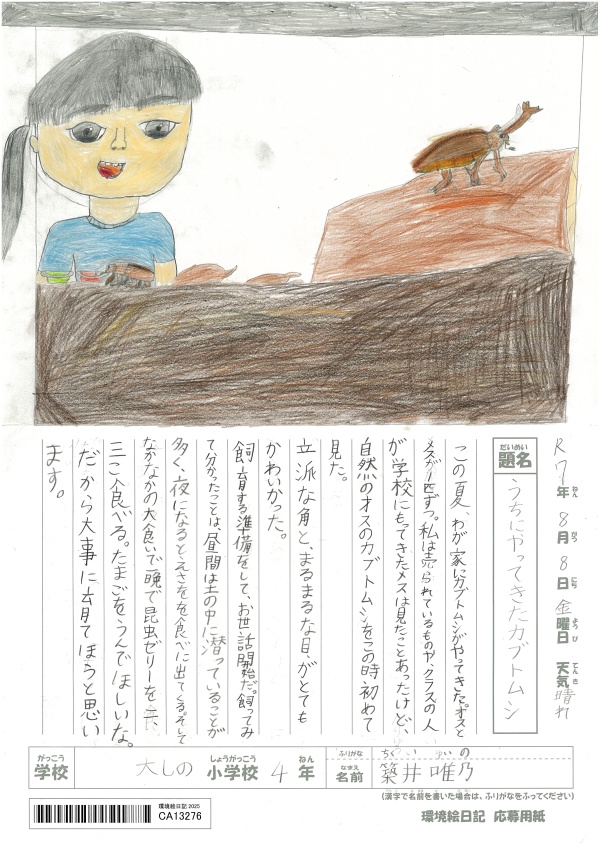 R7年8月8日金曜日 天気晴れ
ねん がつ にち ようび てんき
だいめい
題名 うちにやってきたカブトムシ
この夏、わが家にカブトムシがやってきた。オスと
メスが一匹ずつ。私は売られているものや、クラスの人
が学校にもってきたメスは見たことあったけど、
自然のオスのカブトムシをこの時初めて
見た。
立派な角と、まるまるな目、がとても
かわいかった。
飼育する準備をして、お世話開始だ。飼ってみ
て分かったことは、昼間は土の中に潜っていることが
多く、夜になるとえさをを食べに出てくる。そして
なかなかの大食いで一晩で昆虫ゼリーを二、
三こ食べる。たまごをうんでほしいな。
だから大事に育てほうと思い
ます。
がっこう しょうがっこう ねん
学校 大しの 小学校 4年
ふりがな ちくい ゆいの
なまえ
名前 築井唯乃
(漢字で名前を書いた場合は、ふりがなをふってください)
環境絵日記 2025
CA13276
環境絵日記 応募用紙